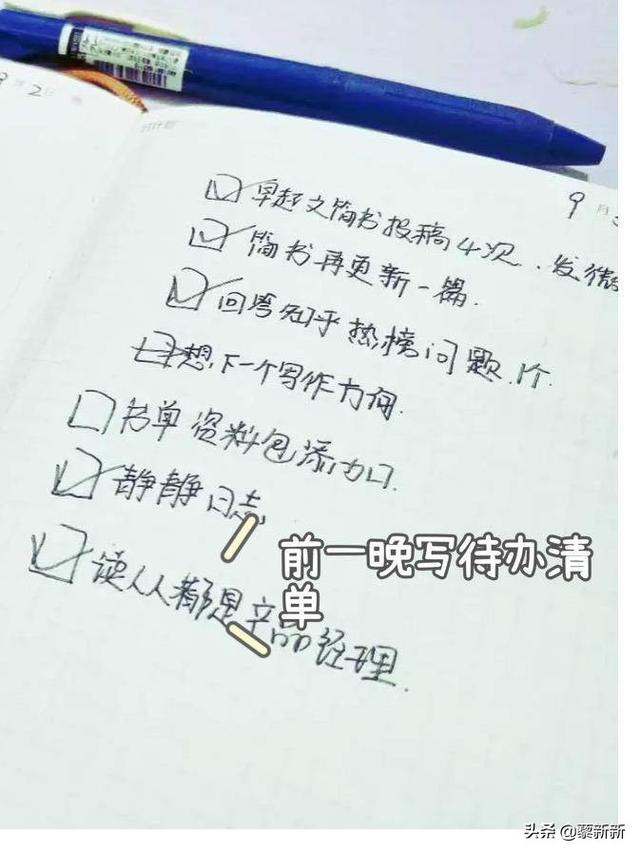 9月2日
9月
早起文简书投稿4次、发微
简书再更新一篇.
回答知乎热榜问题.1个.
想下一个写作方向.
书单资料包添加口.
静静日志
读人人都是产品经理.
前一晚写待办清
单
头条 @黎新新